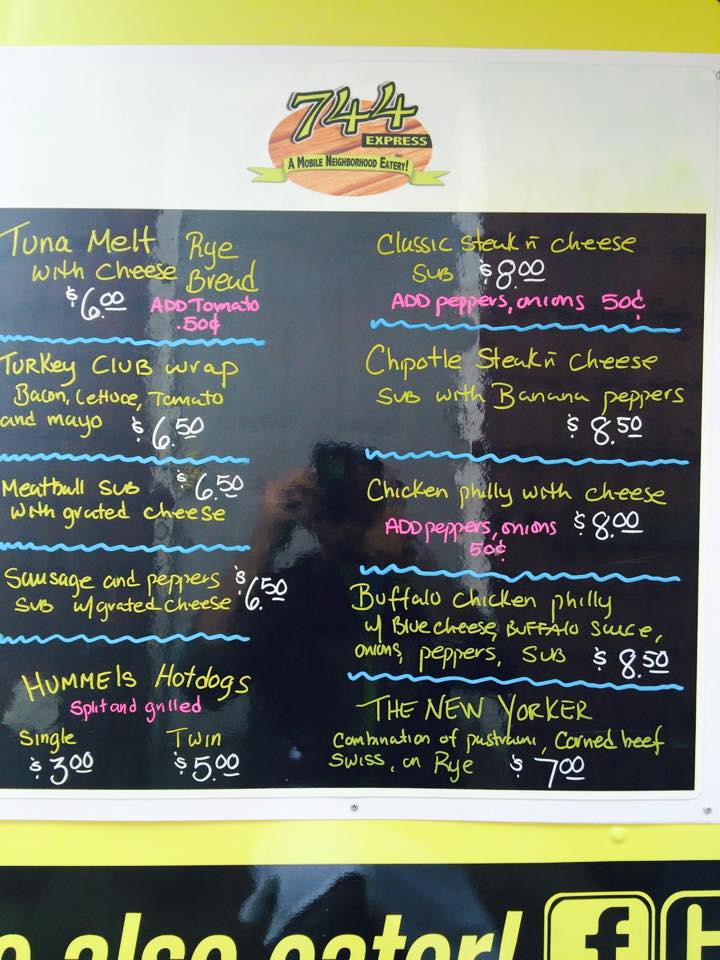 744
EXPRESS
A MOBILE NEIGHBORHOOD EATERY!
Tuna Melt Rye
with cheese Bread
$6.00 ADD Tomato
.50¢
Turkey Club wrap
Bacon, Lettuce, Tomato
and mayo $6.50
Meatball Sub $6.50
with grated cheese
Sausage and peppers $6.50
Sub w/grated cheese
HUMMELS Hotdogs
Split and grilled
Single Twin
$3.00 $5.00
Classic Steak n cheese
Sub $8.00
ADD peppers, onions 50¢
Chipotle Steak n cheese
Sub with Banana peppers
$8.50
Chicken philly with cheese
ADD peppers, onions $8.00
50¢
Buffalo Chicken philly
w/ Bluecheese, BUFFALO sauce,
onions, peppers, Sub $8.50
THE NEW YORKER
Combination of pastrami, Corned beef
Swiss, on Rye $7.00
also cater! f